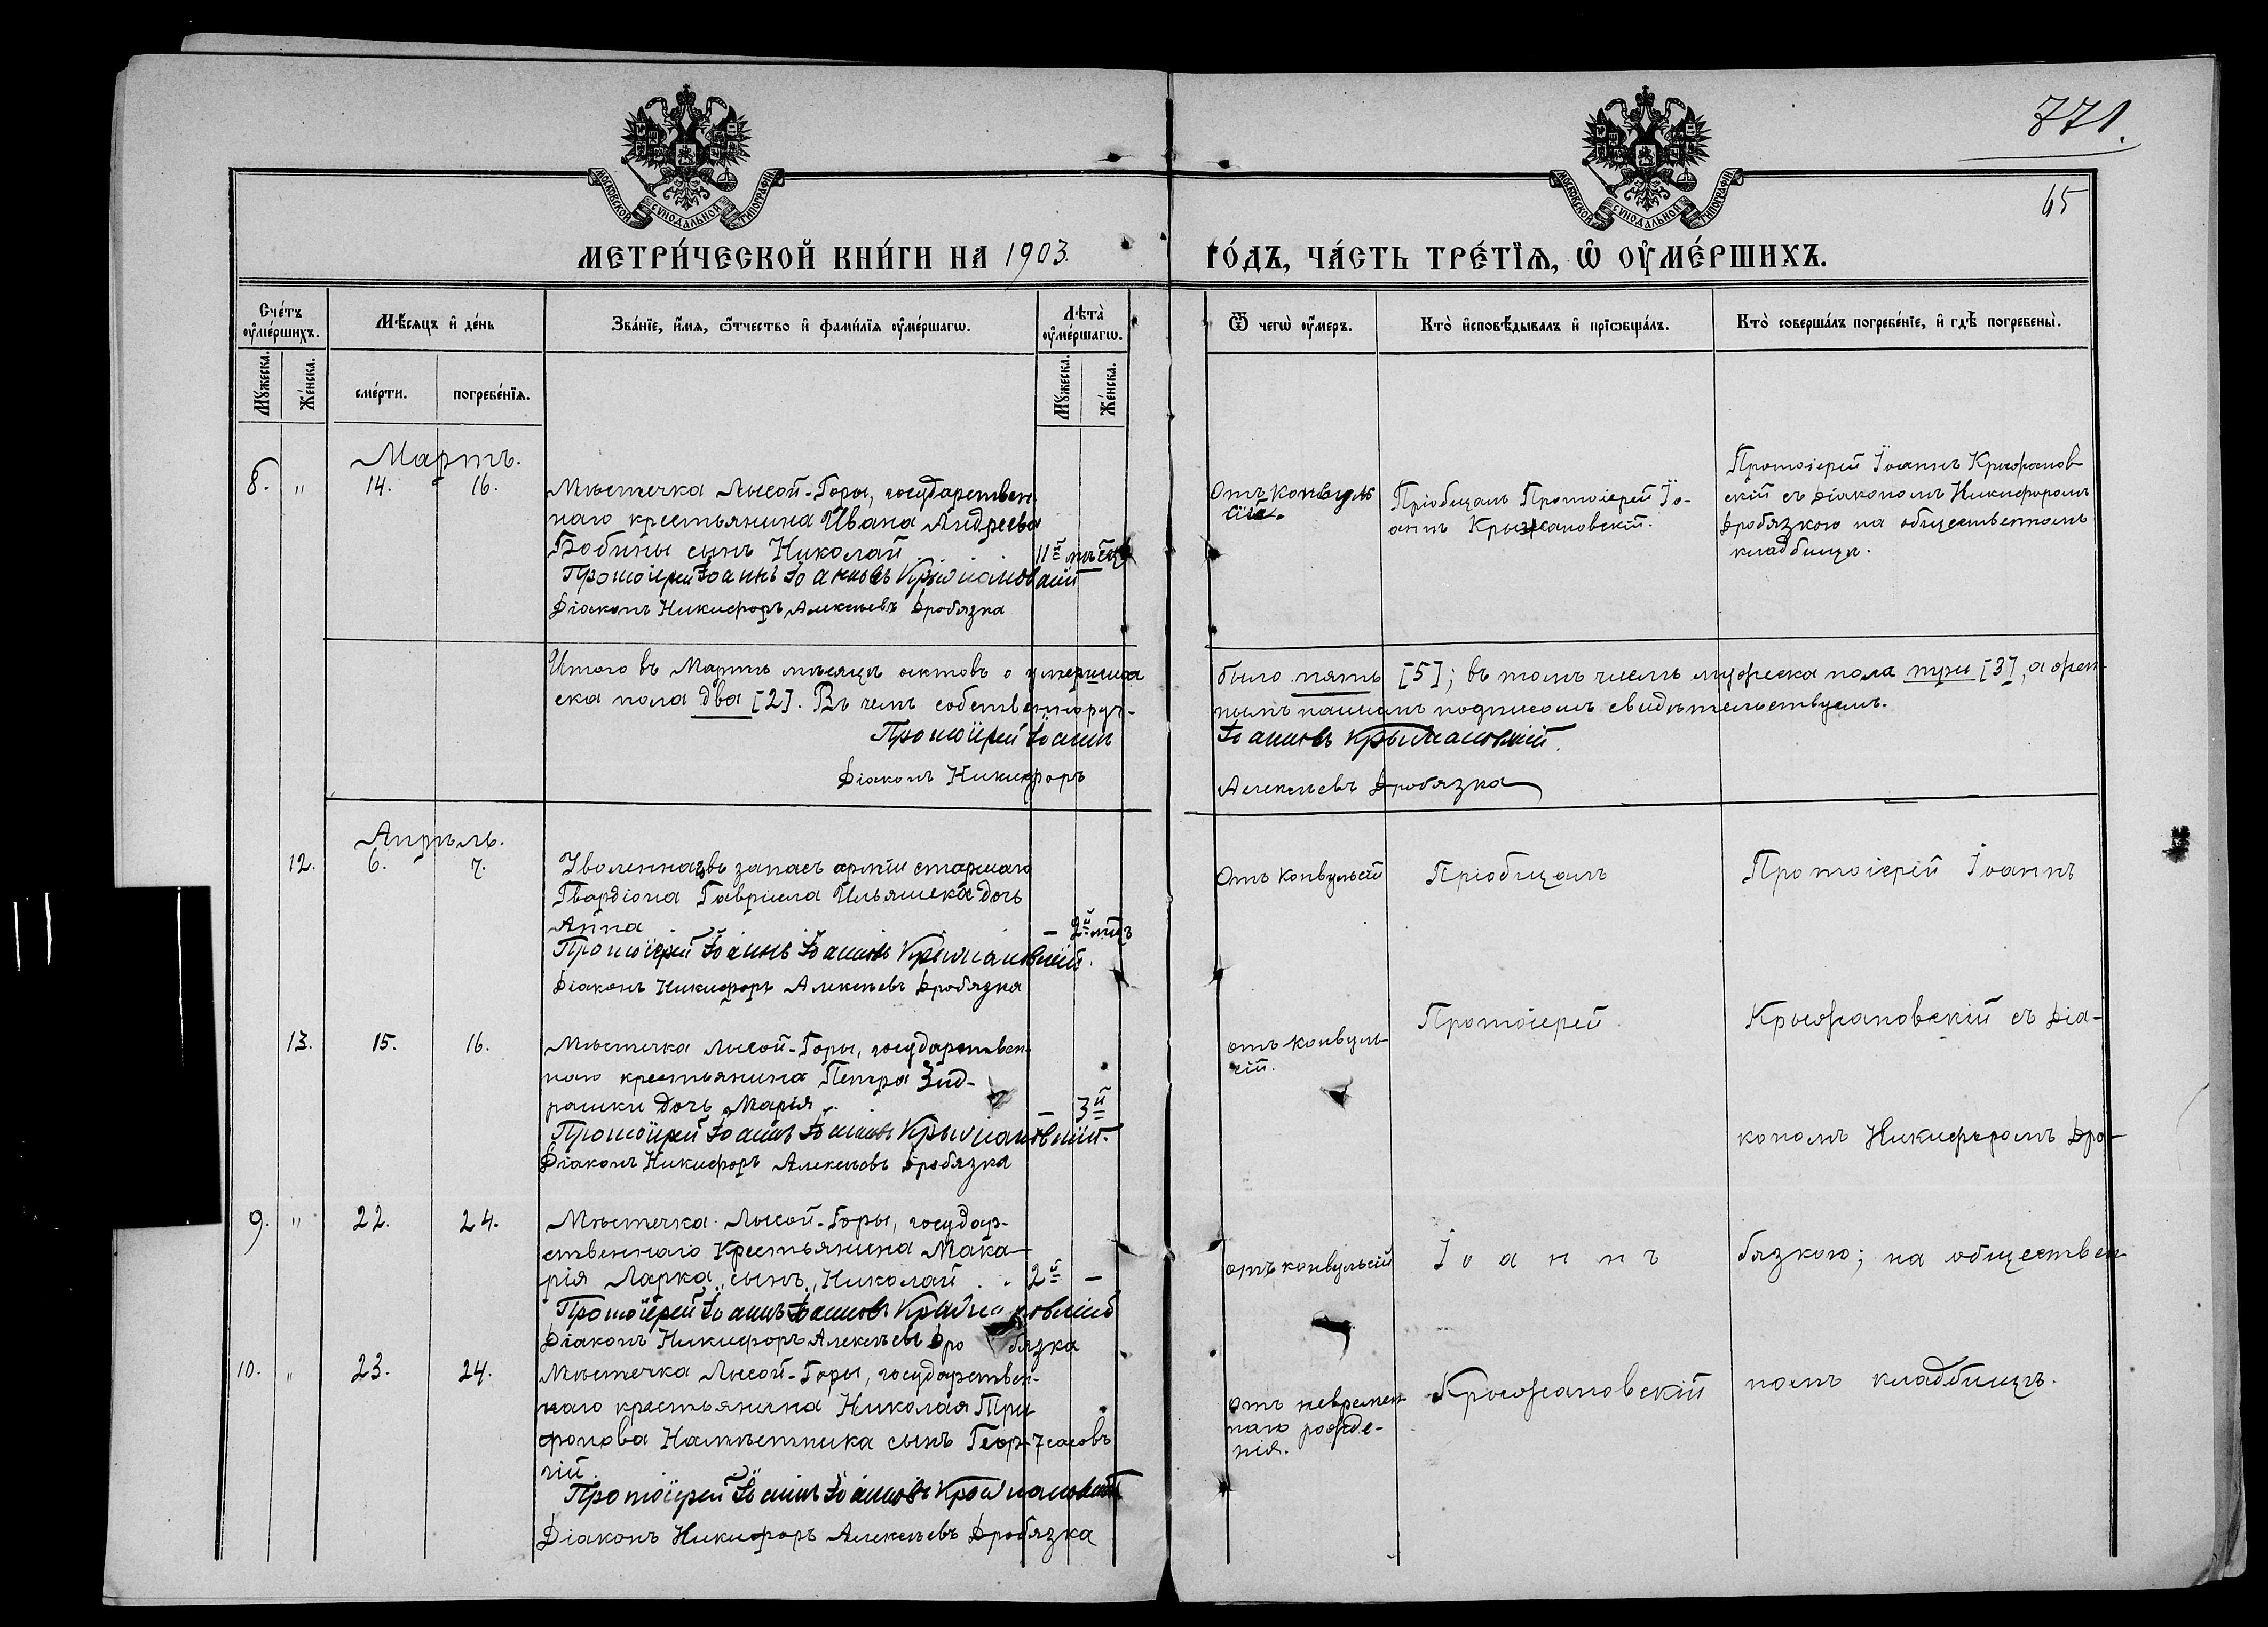 771.
65
МОСКОВСКОЙ СУНОДАЛЬНОЙ ТИПОГРАФІИ
МОСКОВСКОЙ СУНОДАЛЬНОЙ ТИПОГРАФІИ
МЕТРИ́ЧЕСКОЙ КНИ́ГИ НА 1903.
ГО́ДЪ, ЧА́СТЬ ТРЕ́ТЇѦ, Ѽ ОУ҆МЕ́РШИХЪ.
Сче́тъ оу҆ме́ршихъ.
Мѣ́сѧцъ и҆ де́нь
Зва́нїе, и҆́мѧ, ѻ҆́тчество и҆ фами́лїѧ оу҆ме́ршагѡ.
Лѣта̀ оу҆ме́ршагѡ.
Ѿ чегѡ̀ оу҆́меръ.
Кто̀ и҆сповѣ́дывалъ и҆ прїѡбща́лъ.
Кто̀ соверша́лъ погребе́нїе, и҆ гдѣ̀ погребены̀.
Мꙋ́жеска.
Же́нска.
сме́рти.
погребе́нїѧ.
Мꙋ́жеска.
Же́нска.
Мартъ.
8. " 14. 16.
Мѣстечка Лысой-Горы, государствен-
наго крестьянина Ивана Андреева
Бобины сынъ Николай
11й мѣсяц
Протоіерей Іоаннъ Іоанновъ Крыжановскій
Діаконъ Никифоръ Алексѣевъ Дробязка
Отъ конвуль
сіи.
Пріобщалъ Протоіерей Іо-
аннъ Крыжановскій.
Протоіерей Іоаннъ Крыжанов
скій съ Діакономъ Никифоромъ
Дробязкою на общественномъ
кладбищѣ.
Итого въ Мартѣ мѣсяцѣ актовъ о умершихъ
было пять [5]; въ томъ числѣ мужеска пола три [3], а жен-
ска пола два [2]. Въ чемъ собственноруч-
нымъ нашимъ подписомъ свидѣтельствуемъ.
Протоіерей Іоаннъ
Іоанновъ Крыжановскій.
Діаконъ Никифоръ
Алексѣевъ Дробязка
Апрѣль.
12. 6. 7.
Уволеннаго въ запасъ арміи старшаго
Гвардіона Гавріила Ильяшека дочь
Анна
– 2й мѣс
Протоіерей Іоаннъ Іоанновъ Крыжановскій.
Діаконъ Никифоръ Алексѣевъ Дробязка
Отъ конвульсій
Пріобщалъ
Протоіерей Іоаннъ
13. 15. 16.
Мѣстечка Лысой-Горы, государствен-
наго крестьянина Петра
рашки дочь Марія
– 3й
Протоіерей Іоаннъ Іоанновъ Крыжановскій.
Діаконъ Никифоръ Алексѣевъ Дробязка
отъ конвуль
сій.
Протоіерей
Крыжановскій съ Діа-
кономъ Никифоромъ Дро-
9. " 22. 24.
Мѣстечка Лысой-Горы, государ-
ственнаго Крестьянина Мака-
рія Ларка, сынъ, Николай
2й –
Протоіерей Іоаннъ Іоанновъ Крыжановскій
Діаконъ Никифоръ Алексѣевъ Дро бязка
отъ конвульсій
Іоаннъ
бязкою; на обществен
10. " 23. 24.
Мѣстечка Лысой-Горы, государствен-
наго крестьянина Николая Три
фонова Намѣстника сынъ Геор-
гій.
7 часовъ
Протоіерей Іоаннъ Іоанновъ Крыжановскій
Діаконъ Никифоръ Алексѣевъ Дробязка
отъ невремен
наго рожде-
нія.
Крыжановскій
номъ кладбищѣ.